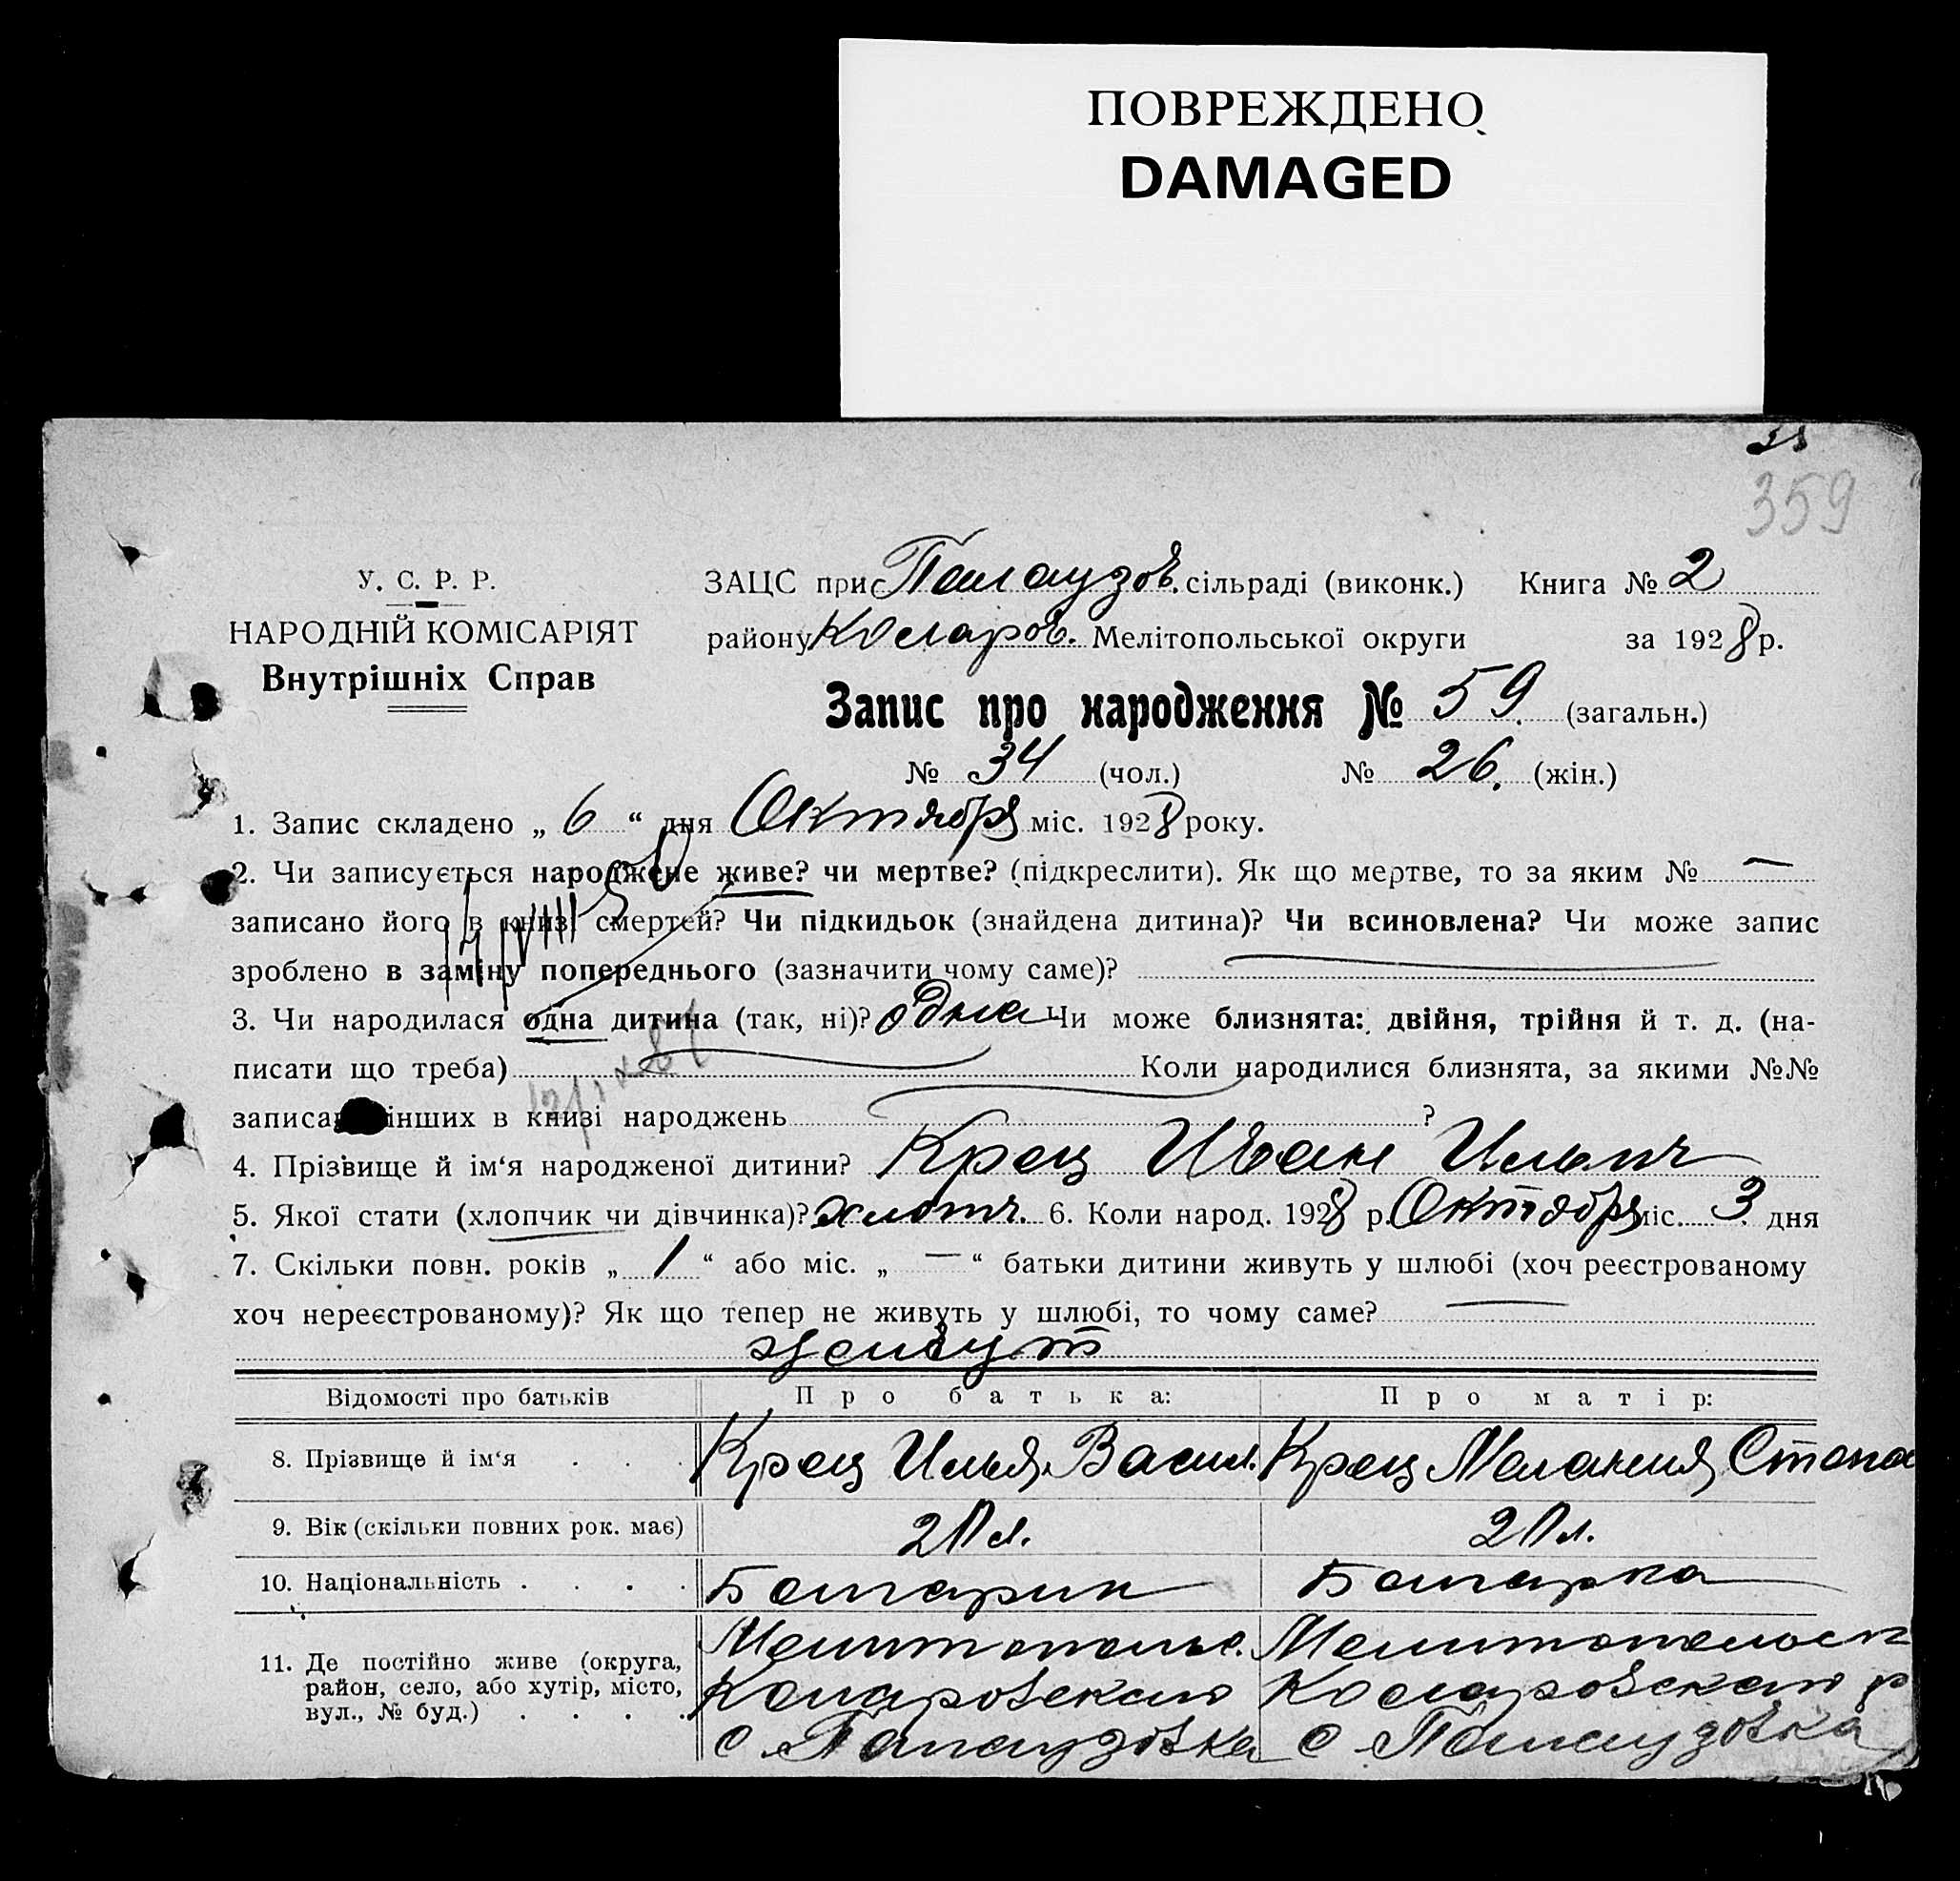 ПОВРЕЖДЕНО
DAMAGED
359
У. С. Р. Р.
НАРОДНІЙ КОМІСАРІЯТ
Внутрішніх Справ
ЗАЦС при с Палаузов. сільраді (виконк.) Книга № 2
району Коларов. Мелітопольської округи за 1928 р.
Запис про народження № 59 (загальн.)
№ 34 (чол.) № 26. (жін.)
1. Запис складено „ 6 “ дня Октября міс. 1928 року.
2. Чи записується народжене живе? чи мертве? (підкреслити). Як що мертве, то за яким № —
записано його в книзі смертей? Чи підкидьок (знайдена дитина)? Чи всиновлена? Чи може запис
зроблено в заміну попереднього (зазначити чому саме)?
3. Чи народилася одна дитина (так, ні)? одна Чи може близнята: двійня, трійня й т. д. (на-
писати що треба) Коли народилися близнята, за якими №№
інших в книзі народжень ?
4. Прізвище й ім‘я народженої дитини? Крец Иван Ильич
5. Якої стати (хлопчик чи дівчинка)? хлопч. 6. Коли народ. 1928 р. Октября міс. 3 дня
7. Скільки повн. років „ 1 “ або міс. „ — “ батьки дитини живуть у шлюбі (хоч реєстрованому
хоч нереєстрованому)? Як що тепер не живуть у шлюбі, то чому саме? —
живут
Відомості про батьків Про батька: Про матір:
8. Прізвище й ім‘я . . . Крец Илья Васил. Крец Мелания Степа
9. Вік (скільки повних рок. має) 21 л. 21 л.
10. Національність . . . . Болгарин Болгарка
Мелитопольс. Мелитопольск
11. Де постійно живе (округа,
район, село, або хутір, місто, Коларовскаго Коларовскаго р
вул., № буд.) . . . .
с Палаузовка с Палаузовка